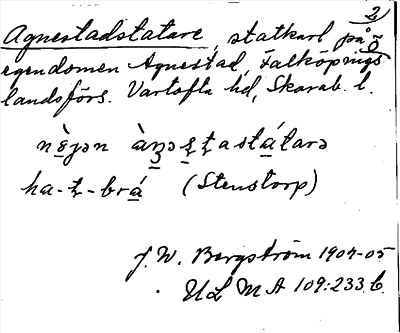 2
Agnestadstatare, statkarl på ö
egendomen Agnestad, Falköpings
landsförs. Vartofta hd, Skarab. l.
ha-t-brá (Stenstorp)
J. W. Bergström 1904-05
ULMA 109:233 b.